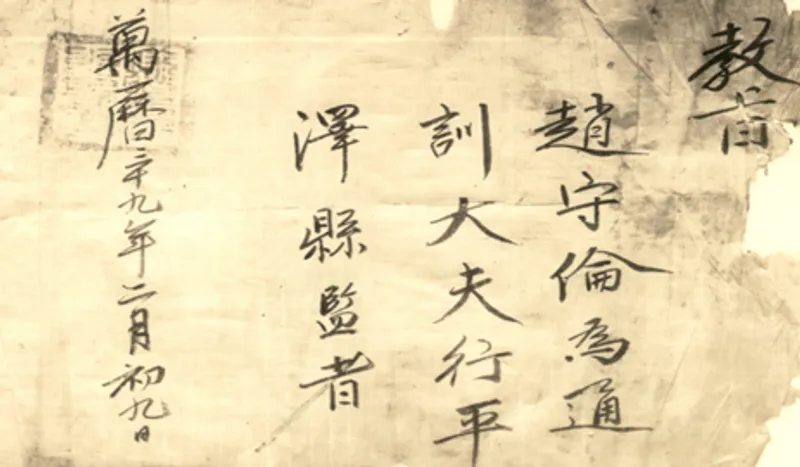 教旨
趙守倫為通
訓大夫行平
澤縣監者
萬曆三十九年二月初九日